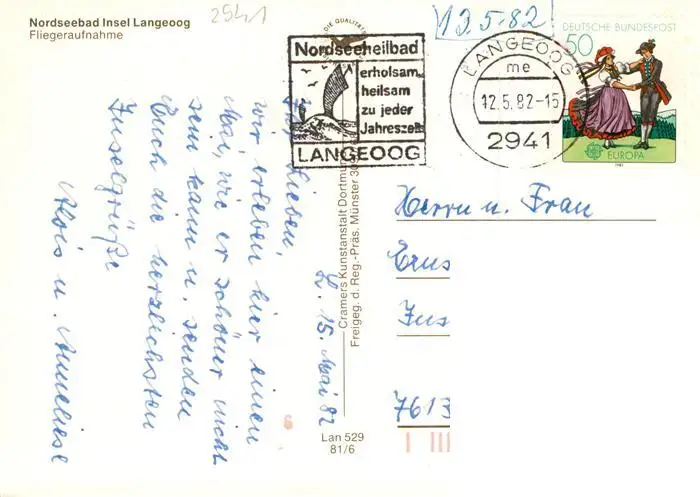 Nordseebad Insel Langeoog
Fliegeraufnahme
2941
DIE QUALITÄTS
Nordseeheilbad
erholsam
heilsam
zu jeder
Jahreszeit
LANGEOOG
12.5.82
LANGEOOG
me
12.5.82-15
2941
DEUTSCHE BUNDESPOST
50
EUROPA
1981
L. 15. Mai 82
Lieben,
wir erleben hier einen
Mai, wie er schöner nicht
sein kann u. senden
Euch die herzlichsten
Inselgrüße
Alois u. Anneliese
Cramers Kunstanstalt Dortmund
Freigeg. d. Reg.-Präs. Münster
Lan 529
81/6
Herrn u. Frau
7613